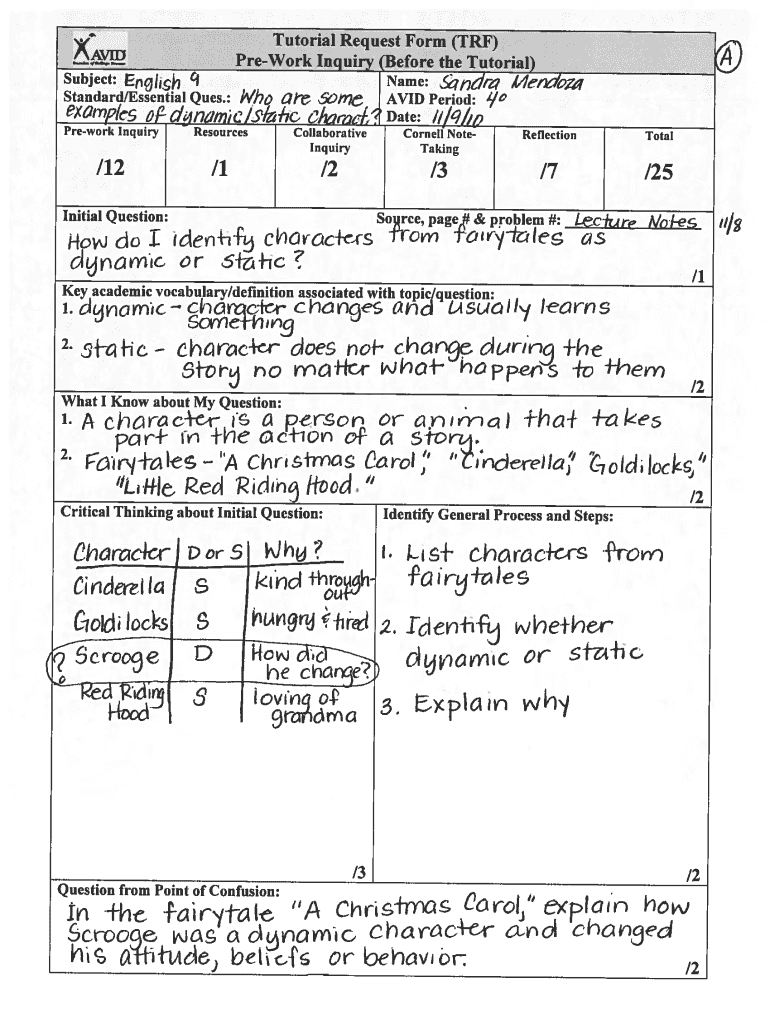 AVID
Tutorial Request Form (TRF)
Pre-Work Inquiry (Before the Tutorial)
A
Subject: English 9
Name: Sandra Mendoza
Standard/Essential Ques.: Who are some
AVID Period: 4°
examples of dynamic/static charact.?
Date: 11/9/10
Pre-work Inquiry
Resources
Collaborative
Inquiry
Cornell Note-
Taking
Reflection
Total
/12
/1
/2
/3
/7
/25
Initial Question:
Source, page # & problem #: Lecture Notes 11/8
How do I identify characters from fairytales as
dynamic or static?
/1
Key academic vocabulary/definition associated with topic/question:
1. dynamic - character changes and usually learns
something
2. static - character does not change during the
story no matter what happens to them
/2
What I Know about My Question:
1. A character is a person or animal that takes
part in the action of a story.
2. Fairytales - "A Christmas Carol," "Cinderella," "Goldilocks,"
"Little Red Riding Hood."
/2
Critical Thinking about Initial Question:
Character D or S Why?
Cinderella S kind through-
out
Goldilocks S hungry & tired
? Scrooge D How did
he change?
Red Riding S loving of
Hood grandma
/3
Identify General Process and Steps:
1. List characters from
fairytales
2. Identify whether
dynamic or static
3. Explain why
/2
Question from Point of Confusion:
In the fairytale "A Christmas Carol," explain how
Scrooge was a dynamic character and changed
his attitude, beliefs or behavior.
/2